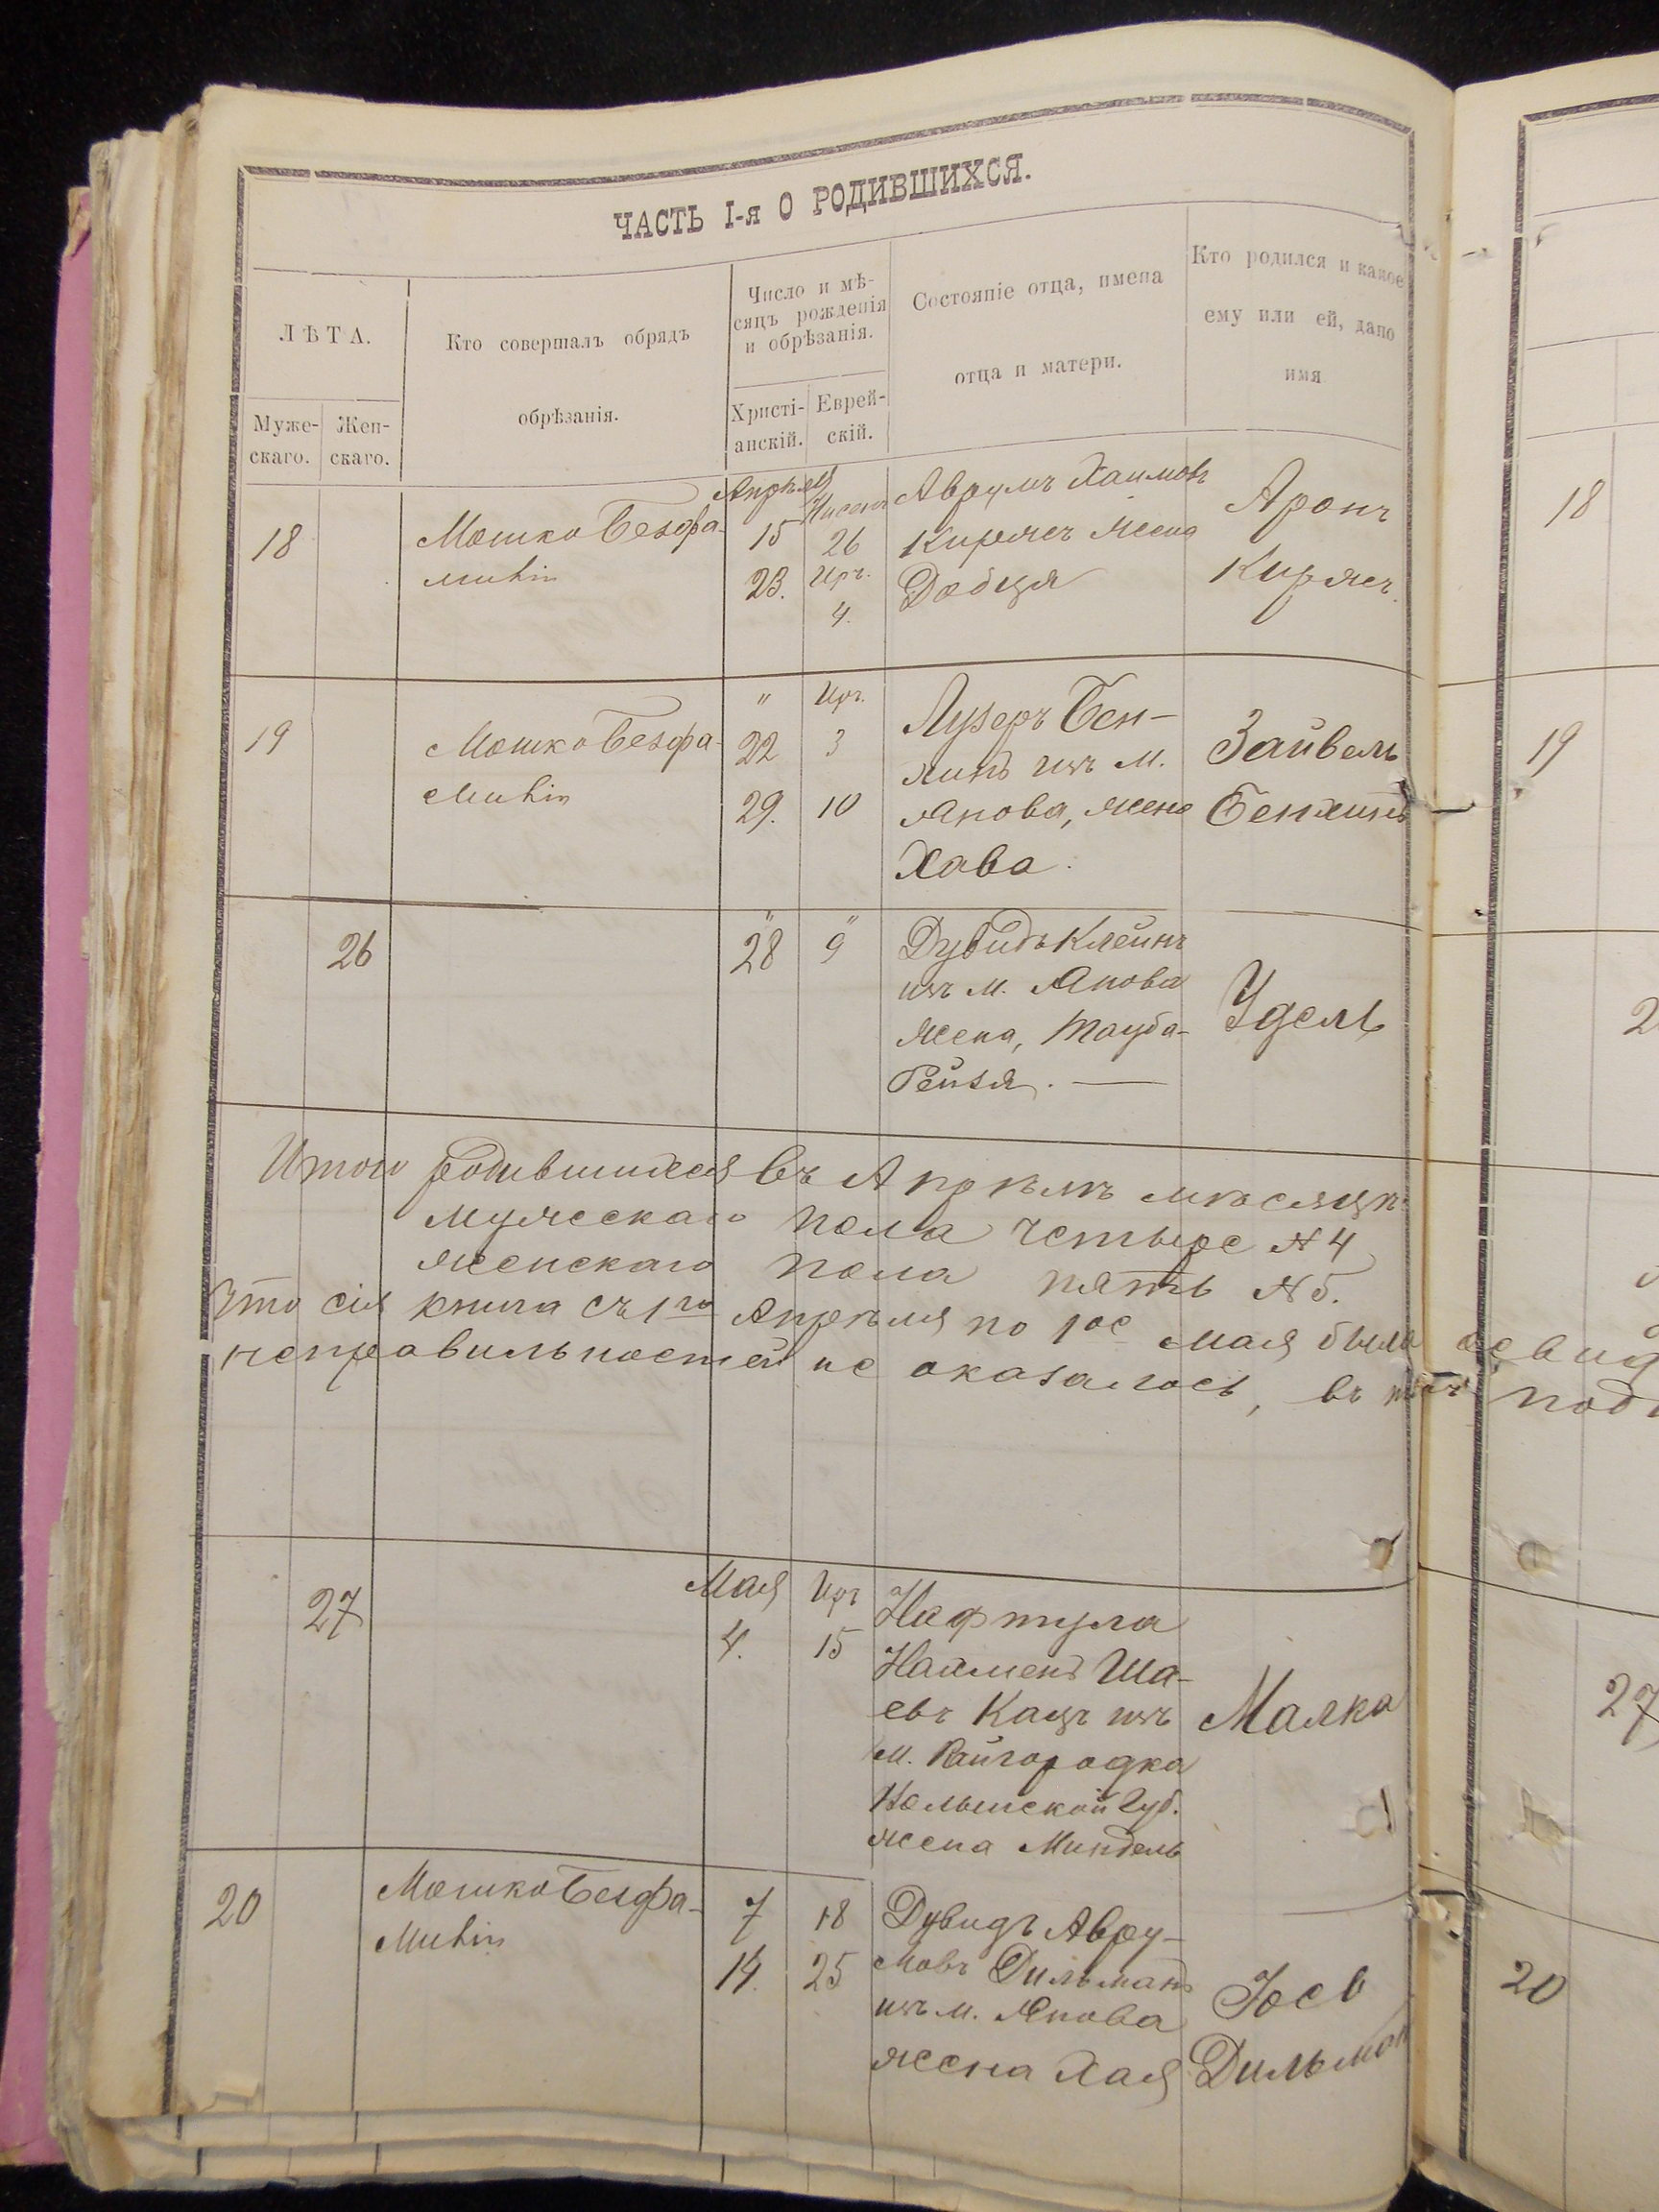 ЧАСТЬ I-я О РОДИВШИХСЯ.
ЛѢТА.
Муже-
скаго.
Жен-
скаго.
Кто совершалъ обрядъ
обрѣзанія.
Число и мѣ-
сяцъ рожденія
и обрѣзанія.
Христі-
анскій.
Еврей-
скій.
Состояніе отца, имена
отца и матери.
Кто родился и какое
ему или ей, дано
имя
18
Мошко Безфа-
Апрѣля
15
23.
Нисана
26
Ир.
4.
Аврумъ Хаимовъ
Киржеч жена
Добця
Аронъ
Киржеч.
18
19
Мошко Безфа-
"
22
29.
Ир.
3
10
Лузеръ Бен-
изъ М.
Янова, жена
Хава.
Зайвель
19
26
"
28
"
9
Дувидъ Клейнъ
изъ м. Янова
жена, Тауба-
Рейзя. —
Удель
2
Итого родившихся въ Апрѣлѣ мѣсяцѣ
мужескаго пола четыре № 4
женскаго пола пять № 5.
Что сія книга съ 1го Апрѣля по 1ое мая была освид
неправильностей не оказалось, въ томъ под
27
Мая
4.
Ир
15
Нафтула
Нахменъ Ша-
евъ Кацъ изъ
м. Райгородка
Волынской Губ.
жена Миндель
Малка
27
20
Мошко Безфа-
7
14.
18
25
Дувидъ Авру-
мовъ Дильманъ
изъ м. Янова
жена Хая
Іось
Дильман
20